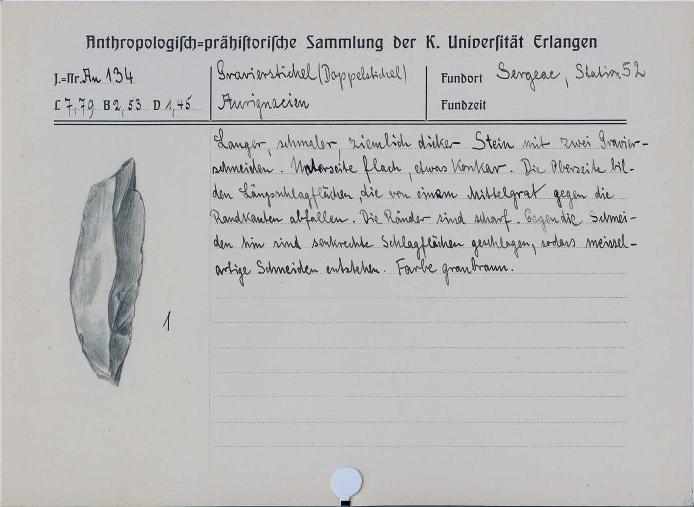 Anthropologisch=prähistorische Sammlung der K. Universität Erlangen
J.=Nr. An 134
L 7,79 B 2,53 D 1,45
Gravierstichel (Doppelstichel)
Aurignacien
Fundort Sergeac, Station 52
Fundzeit
Langer, schmaler, ziemlich dicker Stein mit zwei Gravier-
schneiden. Unterseite flach, etwas konkav. Die Oberseite bil-
den Längsschlagflächen, die von einem Mittelgrat gegen die
Randkanten abfallen. Die Ränder sind scharf. Gegen die Schnei-
den hin sind senkrechte Schlagflächen geschlagen, sodass meissel-
artige Schneiden entstehen. Farbe graubraun.
1